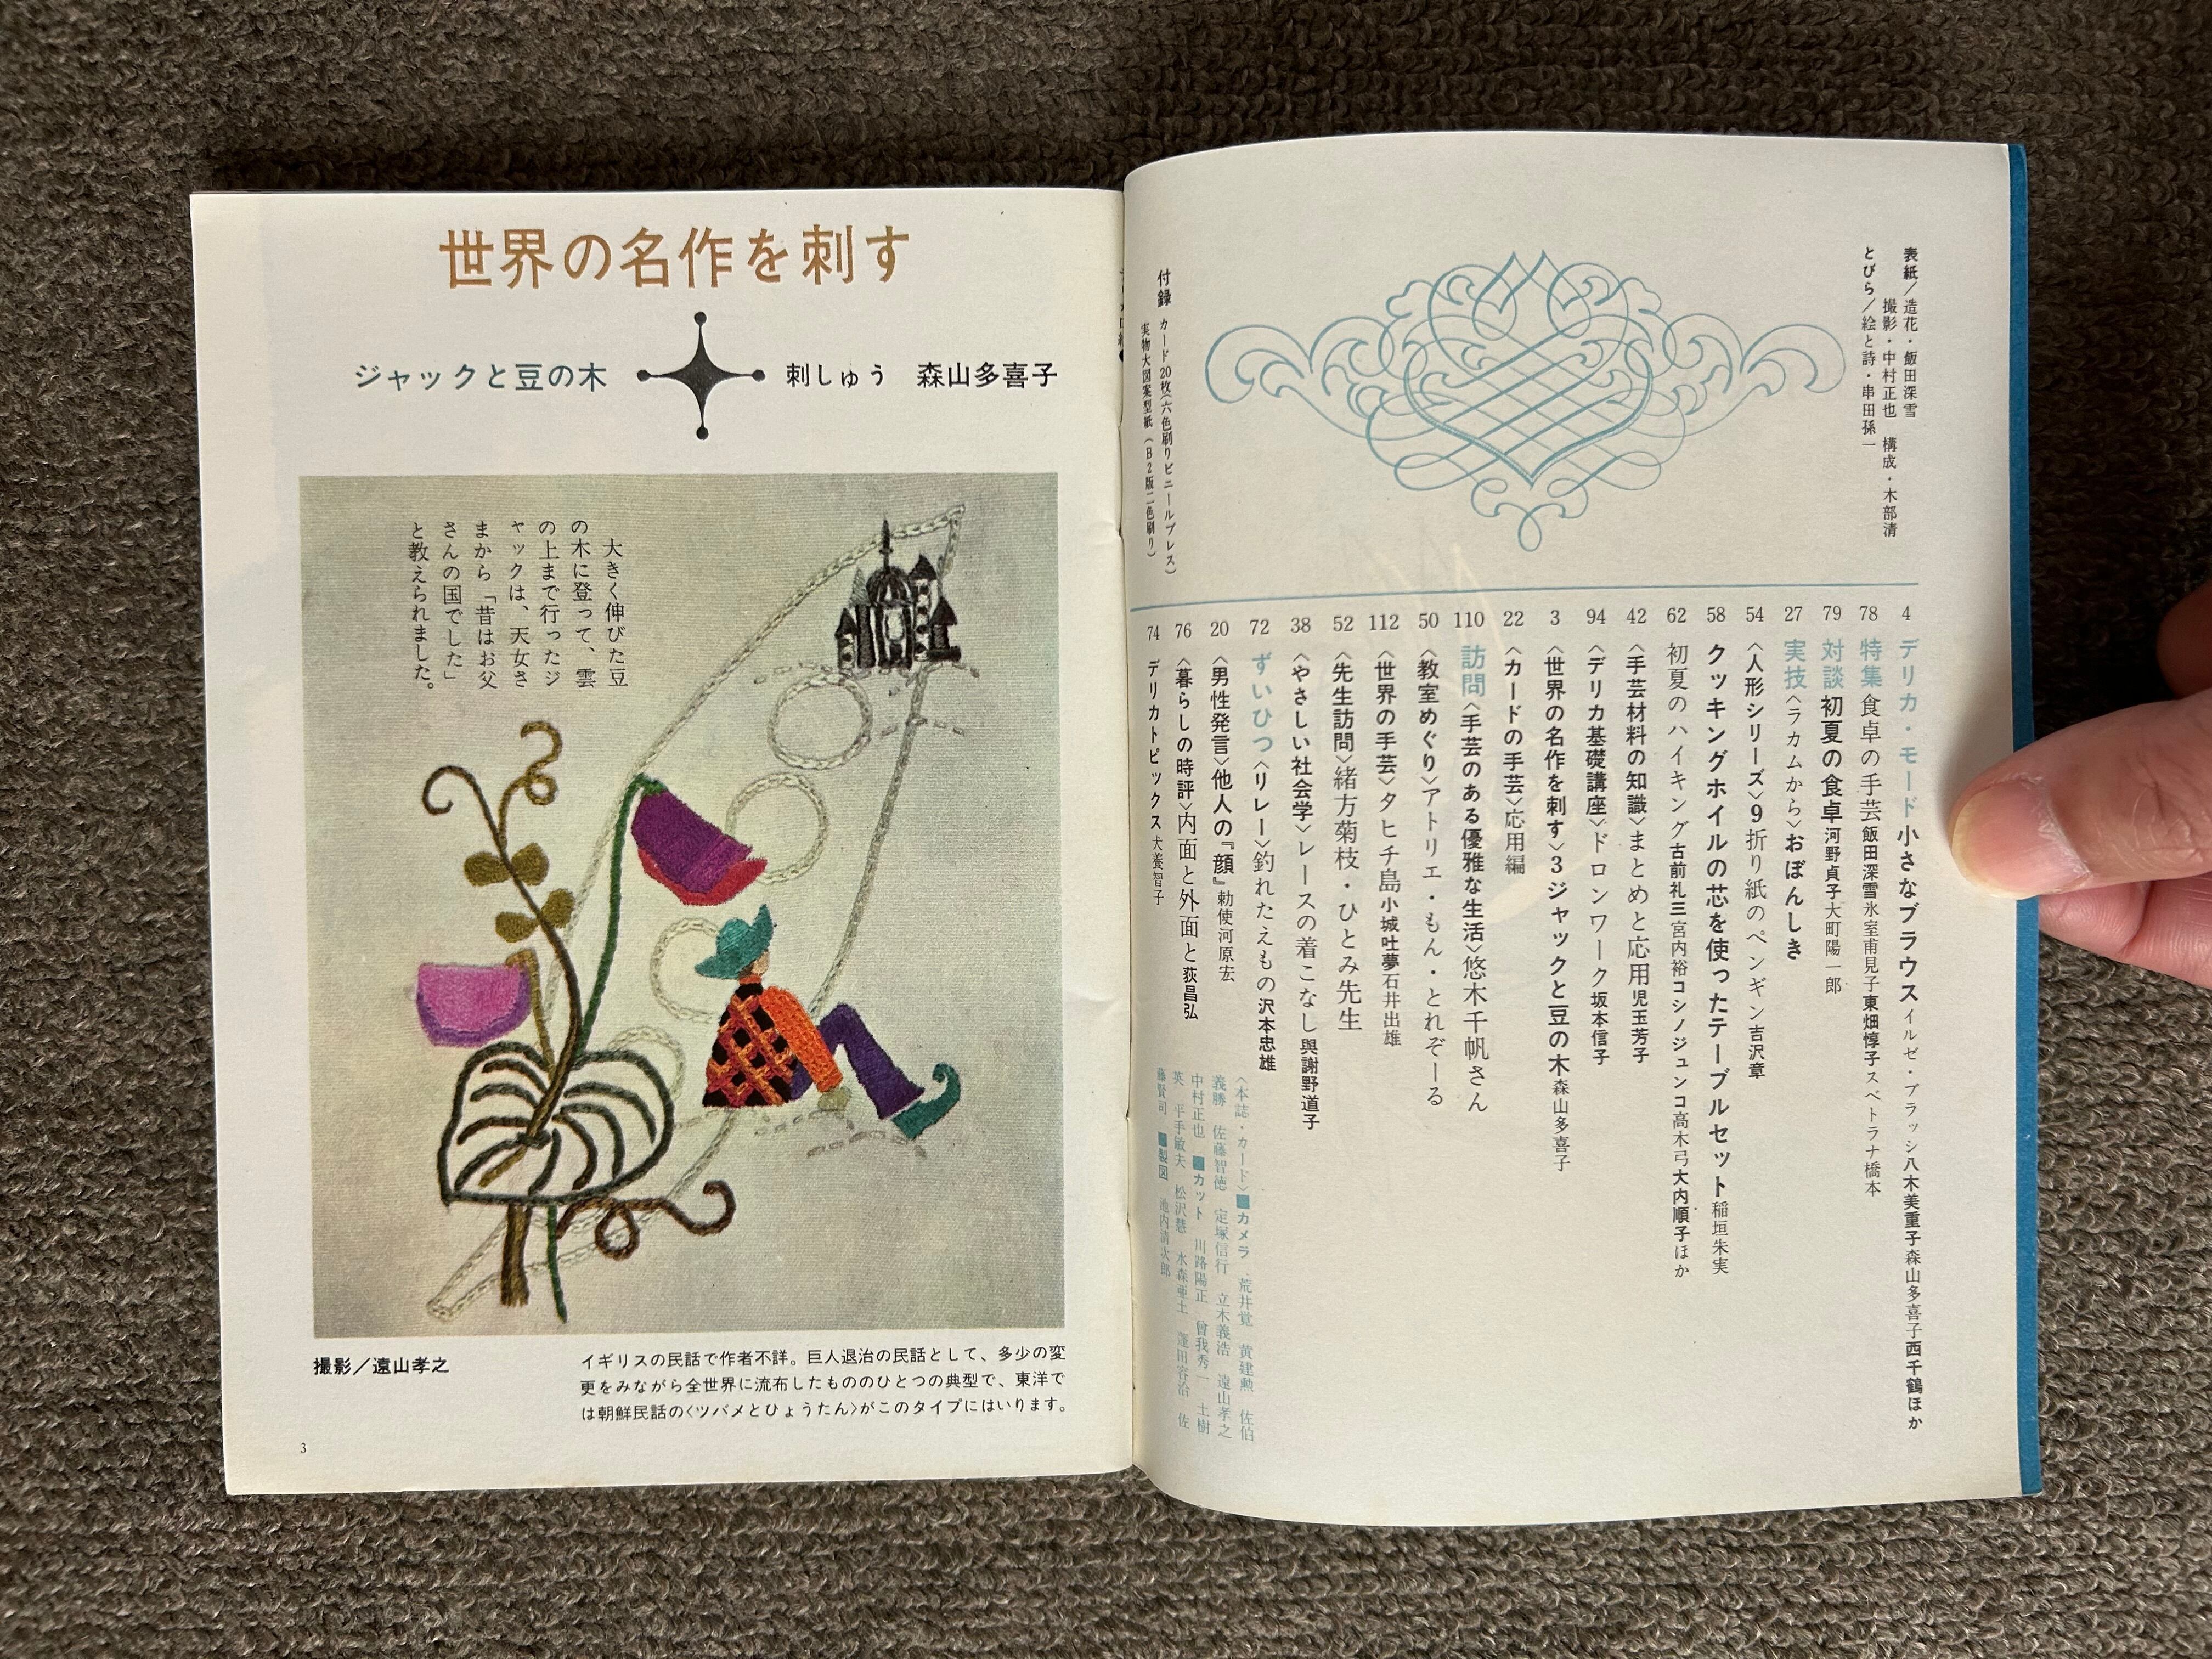 世界の名作を刺す
ジャックと豆の木
刺しゅう　森山多喜子
大きく伸びた豆
の木に登って、雲
の上まで行ったジ
ャックは、天女さ
まから「昔はお父
さんの国でした」
と教えられました。
撮影／遠山孝之
イギリスの民話で作者不詳。巨人退治の民話として、多少の変
更をみながら全世界に流布したもののひとつの典型で、東洋で
は朝鮮民話の〈ツバメとひょうたん〉がこのタイプにはいります。
3
表紙／造花・飯田深雪
撮影・中村正也　構成・木部清
とびら／絵と詩・串田孫一
付録　カード20枚（六色刷りビニールプレス）
実物大図案型紙（B2版二色刷り）
4 デリカ・モード 小さなブラウス イルゼ・ブラッシ 八木美重子 森山多喜子 西千鶴ほか
78 特集 食卓の手芸 飯田深雪 氷室甫見子 東畑惇子 スベトラナ橋本
79 対談 初夏の食卓 河野貞子 大町陽一郎
27 実技〈ラカムから〉おぼんしき
54 〈人形シリーズ〉9 折り紙のペンギン 吉沢章
58 クッキングホイルの芯を使ったテーブルセット 稲垣朱実
62 初夏のハイキング 古前礼三 宮内裕 コシノジュンコ 高木弓 大内順子ほか
42 〈手芸材料の知識〉まとめと応用 児玉芳子
94 〈デリカ基礎講座〉ドロンワーク 坂本信子
3 〈世界の名作を刺す〉3 ジャックと豆の木 森山多喜子
22 〈カードの手芸〉応用編
110 訪問〈手芸のある優雅な生活〉悠木千帆さん
50 〈教室めぐり〉アトリエ・もん・とれぞーる
112 〈世界の手芸〉タヒチ島 小城吐夢 石井出雄
52 〈先生訪問〉緒方菊枝・ひとみ先生
38 〈やさしい社会学〉レースの着こなし 與謝野道子
72 ずいひつ〈リレー〉釣れたえもの 沢本忠雄
20 〈男性発言〉他人の『顔』勅使河原宏
76 〈暮らしの時評〉内面と外面と 荻昌弘
74 デリカトピックス 犬養智子
〈本誌・カード〉■カメラ　荒井覚　黄建勲　佐伯
義勝　佐藤智徳　定塚信行　立木義浩　遠山孝之
中村正也　■カット　川路陽正　曾我秀一　土樹
英　平手敏夫　松沢慧　水森亜土　蓬田容治　佐
藤賢司　■製図　池内清次郎